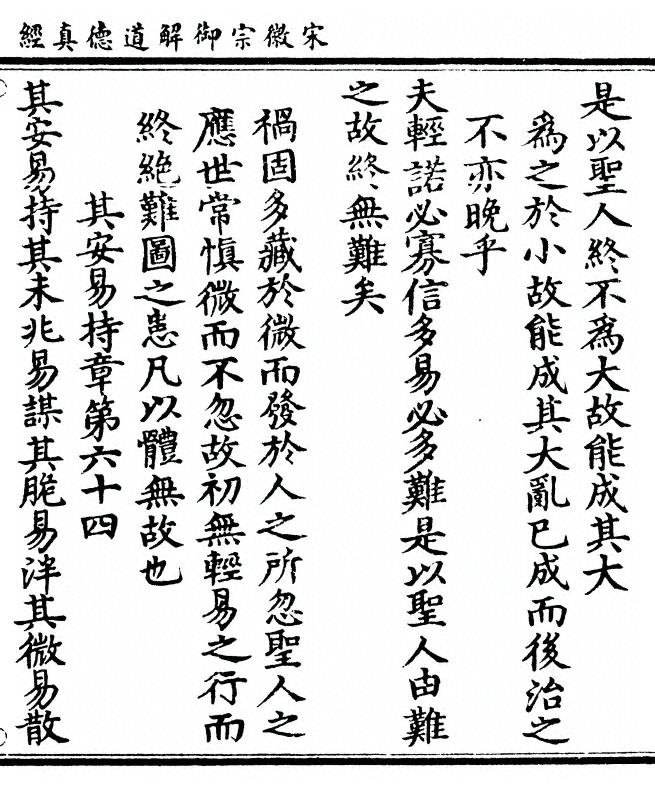 宋徽宗御解道德真經
是以聖人終不爲大故能成其大
爲之於小故能成其大亂已成而後治之
不亦晚乎
夫輕諾必寡信多易必多難是以聖人由難
之故終無難矣
禍固多藏於微而發於人之所忽聖人之
應世常慎微而不忽故初無輕易之行而
終絶難圖之患凡以體無故也
其安易持章第六十四
其安易持其未兆易謀其脆易泮其微易散